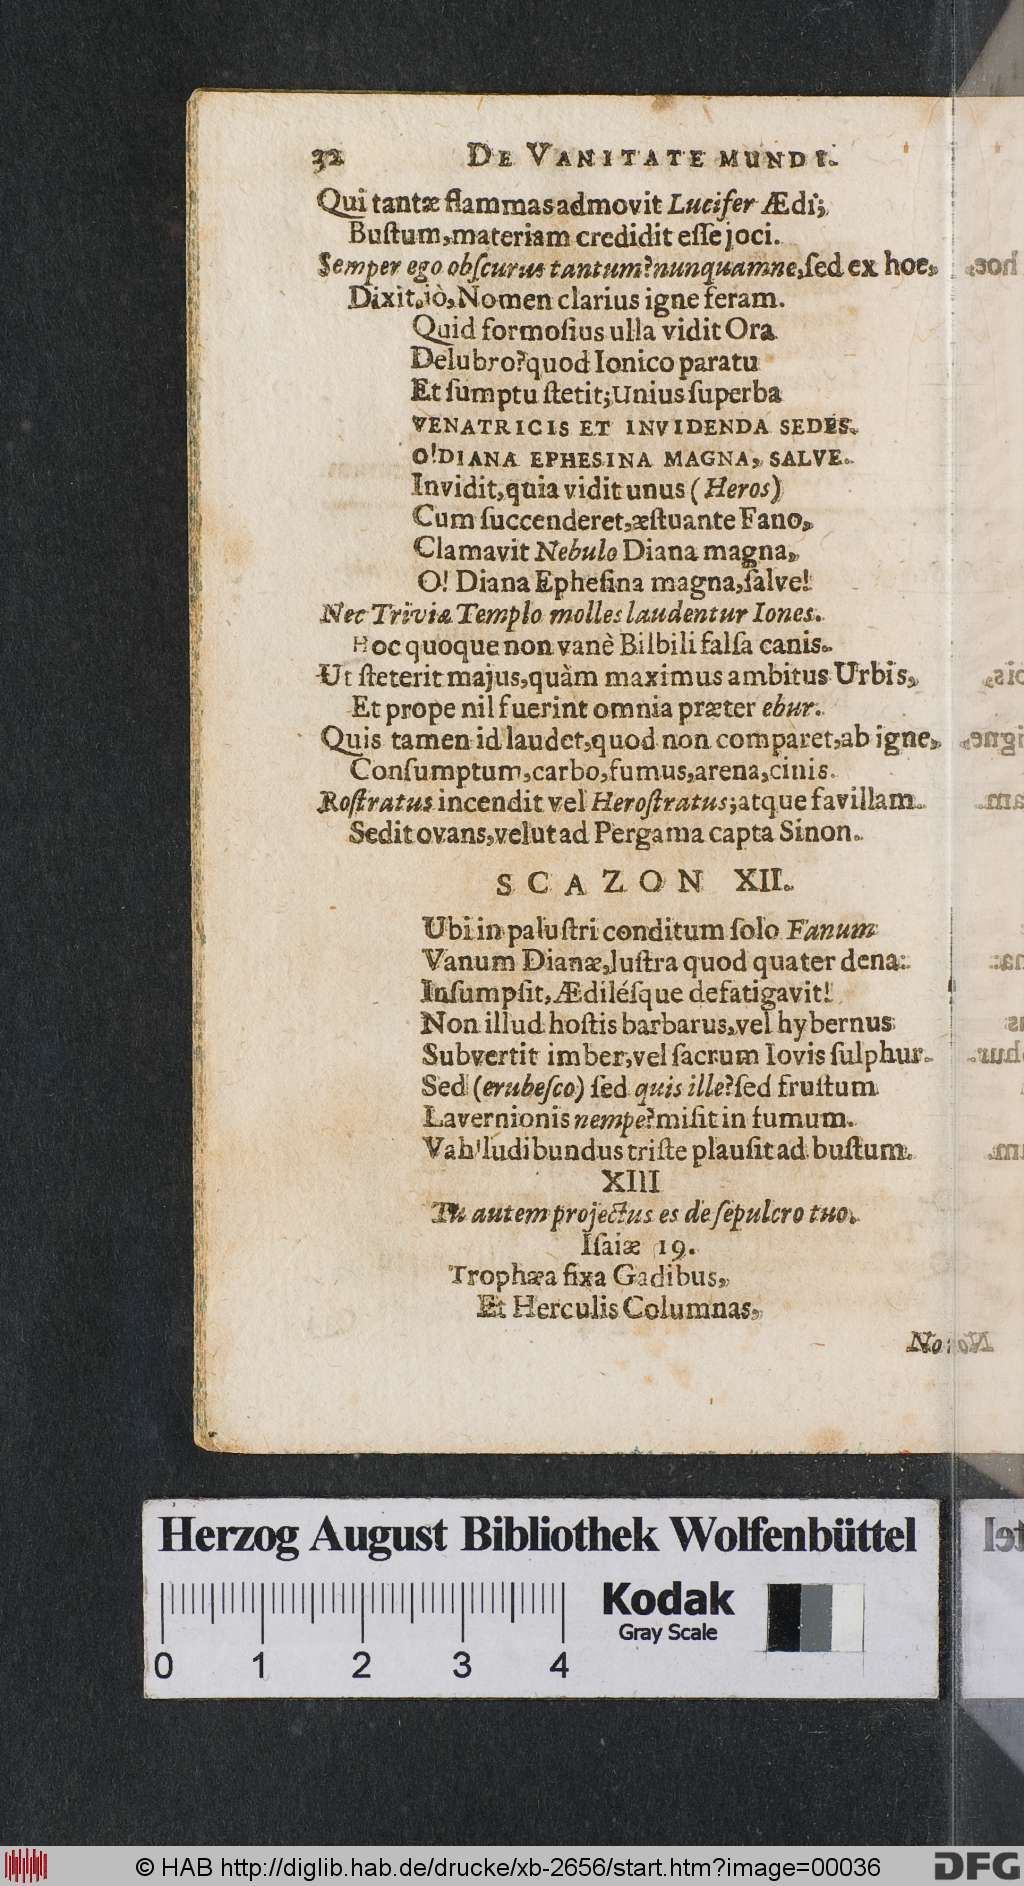 32 DE VANITATE MUNDI.
Qui tantæ flammas admovit Lucifer Ædi;
Buſtum, materiam credidit eſſe joci.
Semper ego obſcurus tantum? nunquamne, ſed ex hoe,
Dixit, iò, Nomen clarius igne feram.
Quid formoſius ulla vidit Ora
Delubro? quod Ionico paratu
Et ſumptu ſtetit; Unius ſuperba
VENATRICIS ET INVIDENDA SEDES.
O! DIANA EPHESINA MAGNA, SALVE.
Invidit, quia vidit unus (Heros)
Cum ſuccenderet, æſtuante Fano,
Clamavit Nebulo Diana magna,
O! Diana Epheſina magna, ſalve!
Nec Triviæ Templo molles laudentur Iones.
Hoc quoque non vanè Bilbili falſa canis.
Ut ſteterit majus, quàm maximus ambitus Urbis,
Et prope nil fuerint omnia præter ebur.
Quis tamen id laudet, quod non comparet, ab igne,
Conſumptum, carbo, fumus, arena, cinis.
Roſtratus incendit vel Heroſtratus; atque favillam
Sedit ovans, velut ad Pergama capta Sinon.
SCAZON XII.
Ubi in paluſtri conditum ſolo Fanum
Vanum Dianæ, luſtra quod quater dena:
Inſumpſit, Ædiléſque defatigavit!
Non illud hoſtis barbarus, vel hybernus
Subvertit imber, vel ſacrum Iovis ſulphur.
Sed (erubeſco) ſed quis ille? ſed fruſtum
Lavernionis nempe? miſit in fumum.
Vah! ludibundus triſte plauſit ad buſtum.
XIII
Tu autem projectus es de ſepulcro tuo.
Iſaiæ 19.
Trophæa fixa Gadibus,
Et Herculis Columnas,
No
Herzog August Bibliothek Wolfenbüttel
Kodak
Gray Scale
0 1 2 3 4
© HAB http://diglib.hab.de/drucke/xb-2656/start.htm?image=00036
DFG